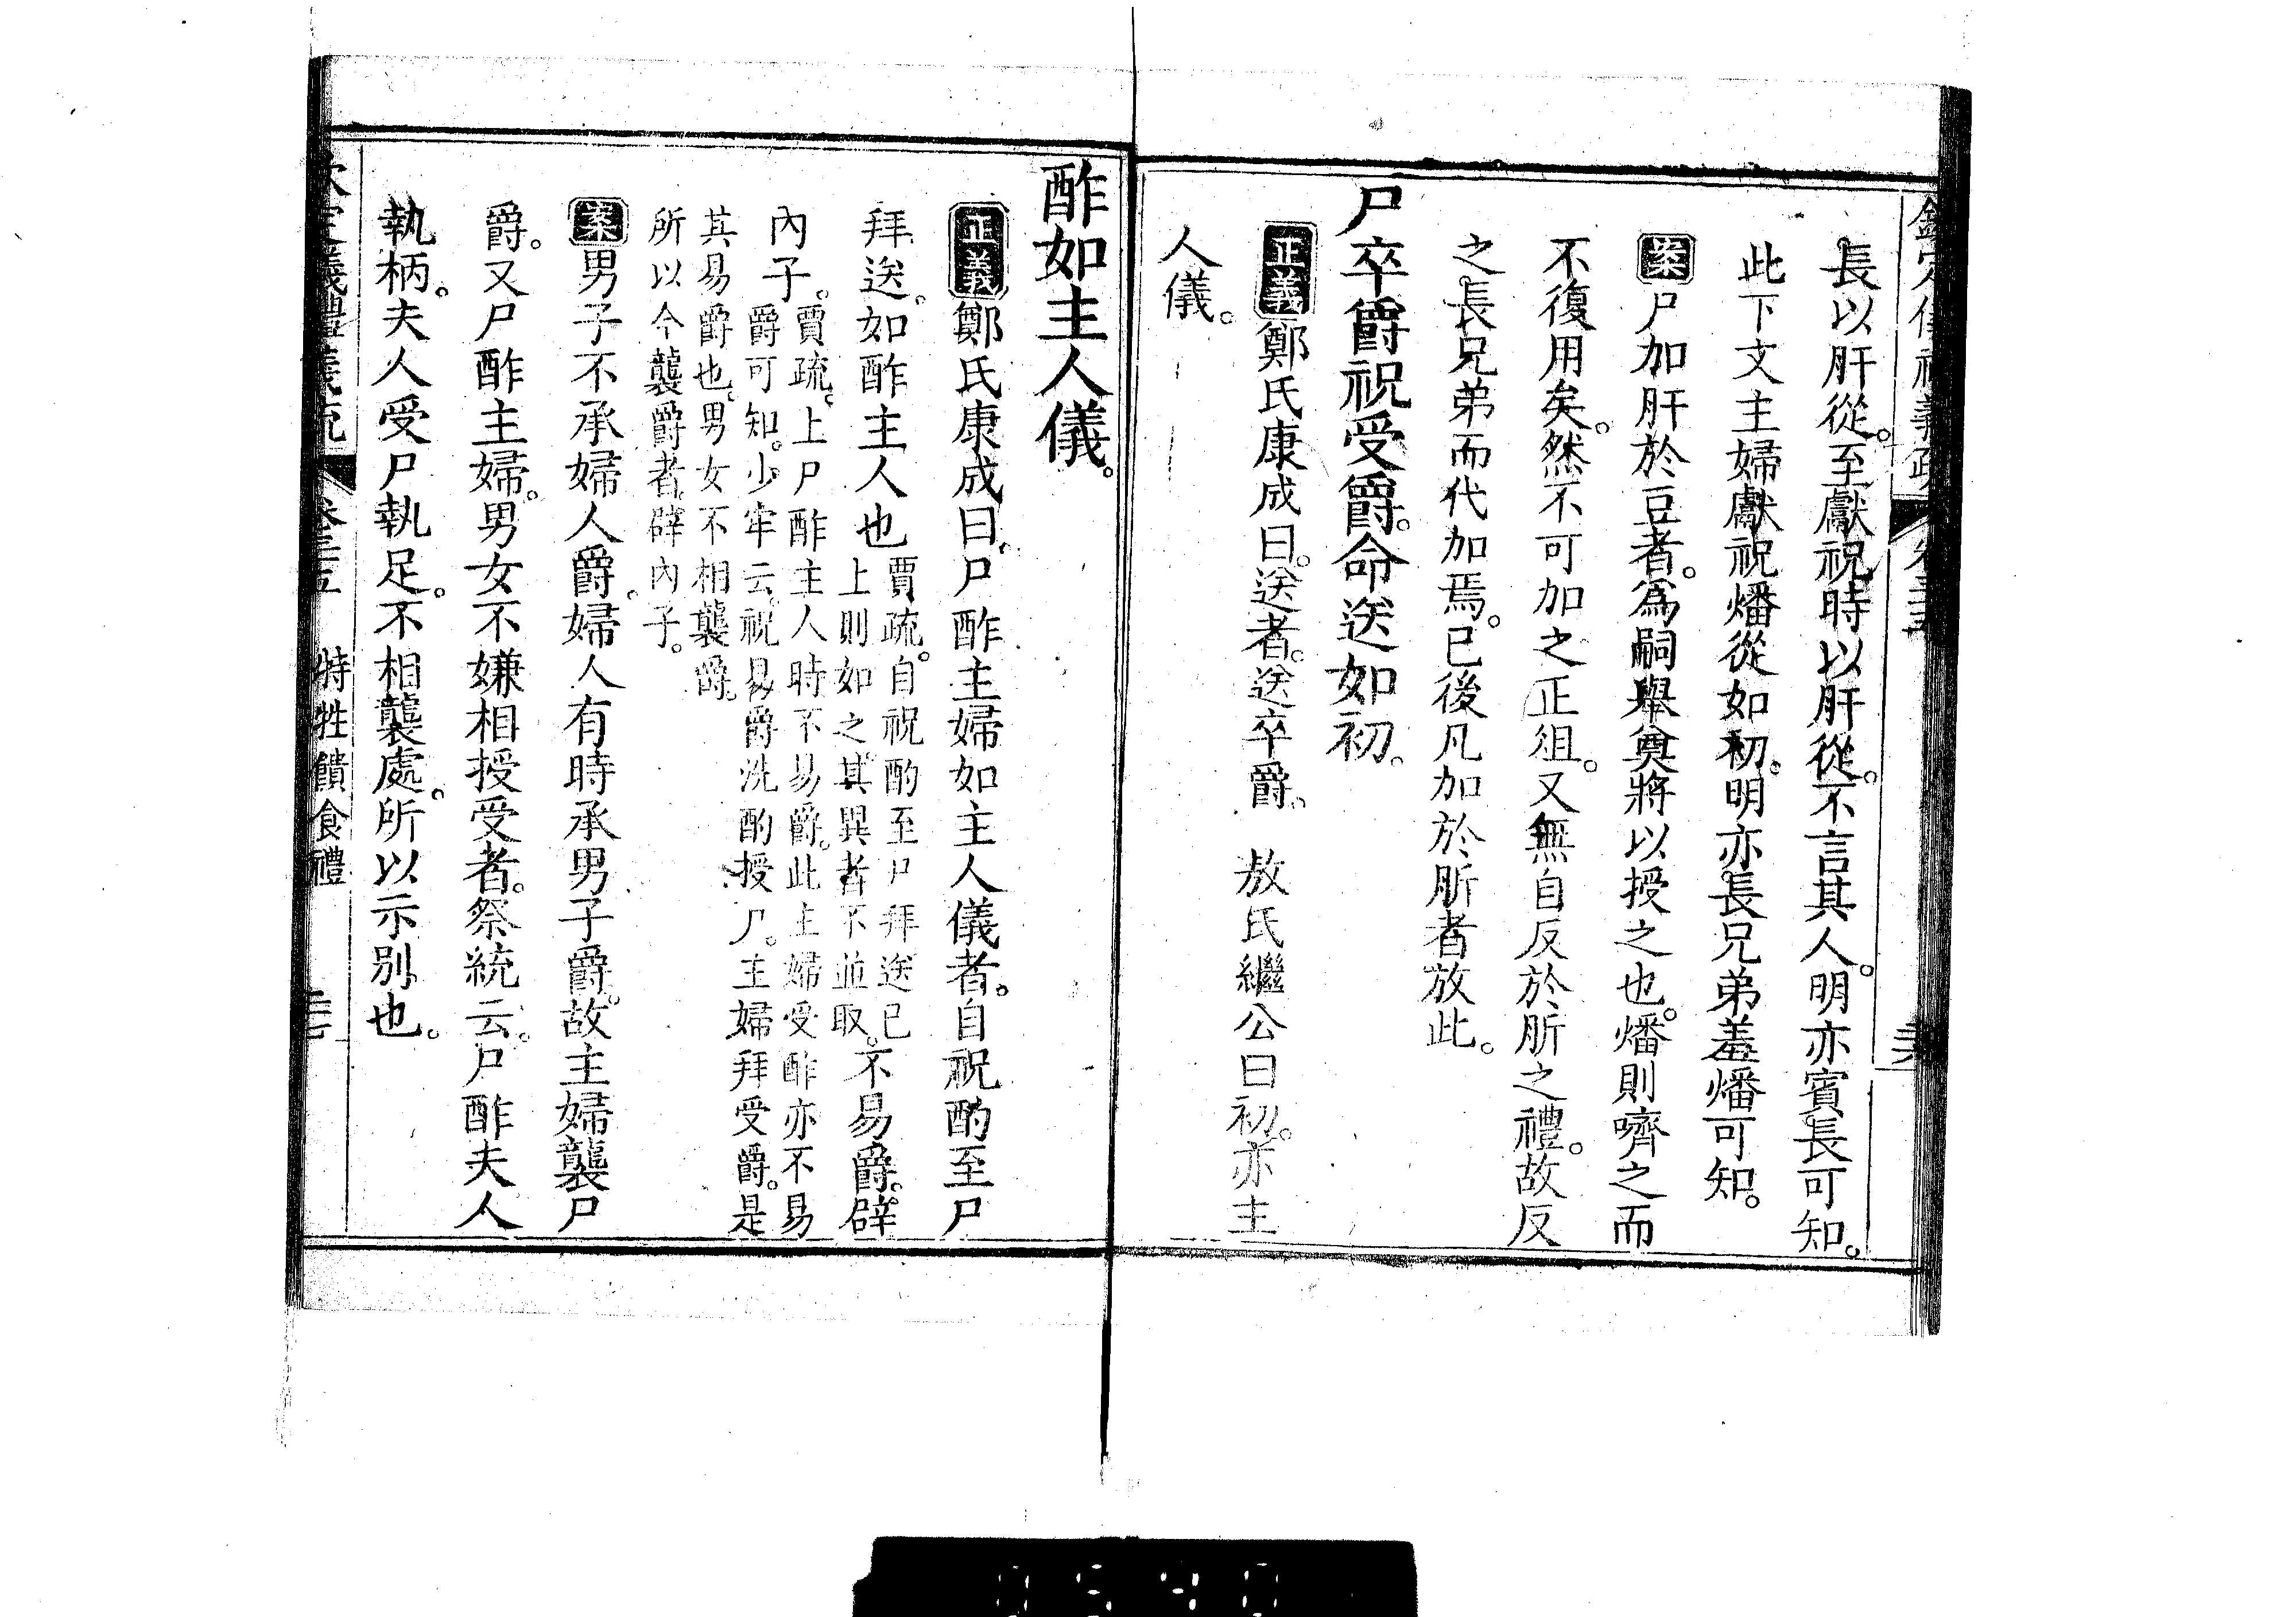 長以肝從。至獻祝時以肝從。不言其人。明亦賓長可知。
此下文主婦獻祝燔從如初。明亦長兄弟羞燔可知。
案尸加肝於豆者。爲嗣舉奠將以授之也。燔則嚌之而
不復用矣。然不可加之正俎。又無自反於肵之禮。故反
之。長兄弟而代加焉。已後凡加於肵者放此。
尸卒爵祝受爵。命送如初。
正義鄭氏康成曰。送者。送卒爵。 敖氏繼公曰初。亦主
人儀。
酢如主人儀。
正義鄭氏康成曰。尸酢主婦如主人儀者。自祝酌至尸
拜送。如酢主人也賈疏。自祝酌至尸拜送已
上則如之。其異者不並取。不易爵。辟
內子。賈疏。上尸酢主人時不易爵。此主婦受酢亦不易
爵可知。少牢云。祝易爵洗酌授尸。主婦拜受爵。是
其易爵也。男女不相襲爵。
所以今襲爵者。辟內子。
案男子不承婦人爵。婦人有時承男子爵。故主婦襲尸
爵。又尸酢主婦。男女不嫌相授受者。祭統云。尸酢夫人
執柄。夫人受尸執足。不相襲處。所以示別也。
特牲饋食禮